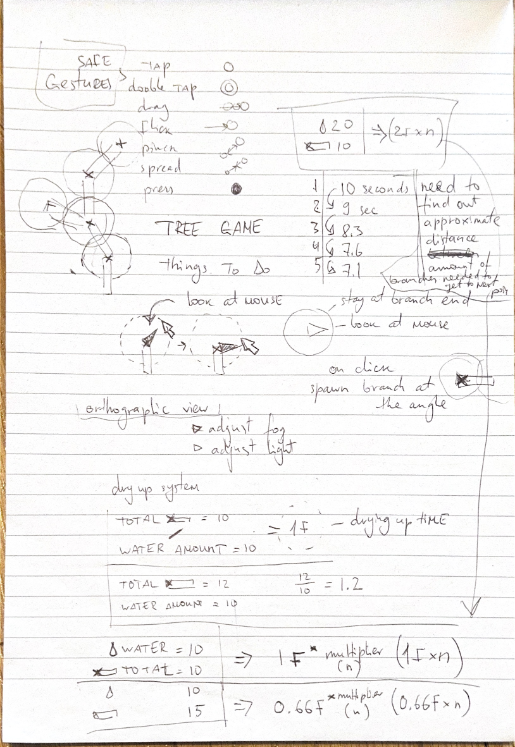 SAFE
Gestures
TAP
double TAP
drag
flick
pinch
spread
press
20
10
=> (2f x n)
1 10 seconds
2 9 sec
3 8.3
4 7.6
5 7.1
need to
find out
approximate
distance
amount of
branches needed to
get to next
TREE GAME
Things To Do
look at mouse
stay at branch end
look at mouse
on click
spawn branch at
the angle
orthographic view
adjust fog
adjust light
dry up system
TOTAL = 10
WATER AMOUNT = 10
= 1F - drying up TIME
TOTAL = 12
WATER AMOUNT = 10
12/10 = 1.2
WATER = 10
TOTAL = 10
=> 1F * multiplier (n) (1F x n)
10
15
=> 0.66F * multiplier (n) (0.66F x n)